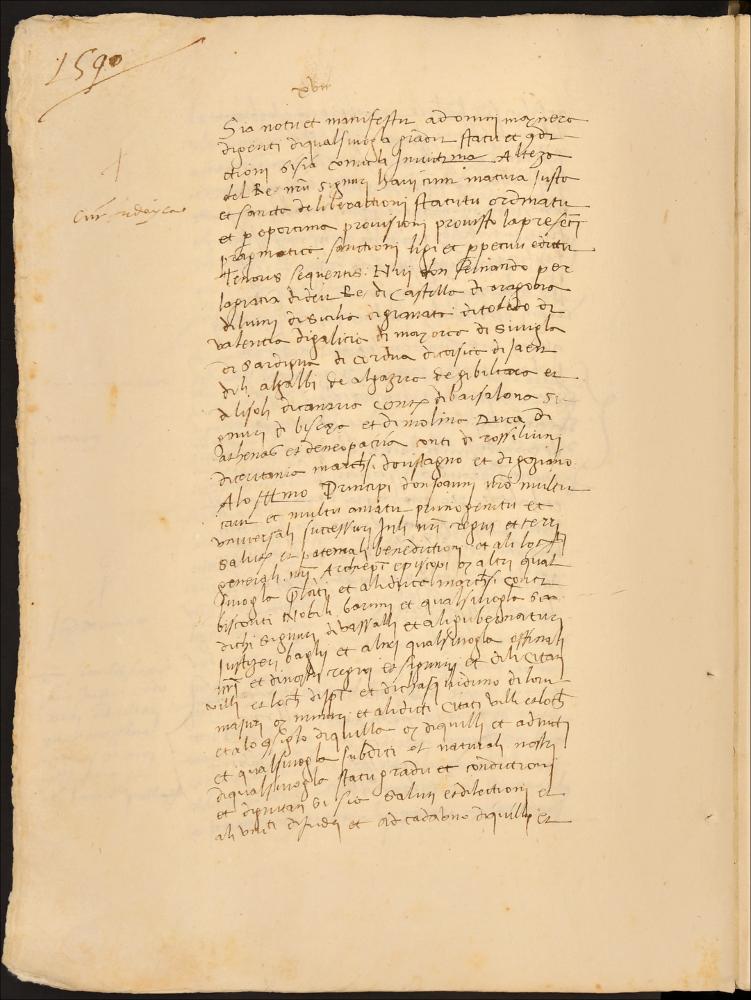 1590
Sia notu et manifestu ad omni maynera
di genti di qualsivogla gradu statu et
ctioni si sia comu la Invictma Alteza
del Re nru signuri havi cum matura justa
et sancta deliberactioni statutu ordinatu
et p oportuna provisioni provisto la present
pragmatica sanctioni ligi et ppetuu edictu
Tenoris sequentis: Nui don Fernando per
la gratia di deu Re di Castella di aragona
di liuni di Sicilia di granata di toledo di
valencia di galicia di mayorca di Sivigla
di Sardigna di cordua di corsica di Jaen
dili algarbi de algazira de gibiltara et
di lisoli di canaria Conti di barsalona Si
gnuri di biscaya et di molina Duca di
Athenas et de neopatria conti di rossiliuni
di ceritania marchsi doristagno et di goziano
Alo Illmo Principi don Joanni nro multu
caru et multu amatu primogenitu et
universali successuri in li nri regni et terri
Saluti et paternali benedictioni et ali
generali nri Archiepi episcopi oy altri qual
sivogla plati et ali duca marchsi conti
bisconti Nobili baruni et qualsivogla
dichi Signuri di vassalli et ali gubernaturi
Justizeri bagli et altri qualsivogla officiali
nri et di nostri regni et signurii et di li Citati
villi et lochi et di chasiuidunu di loru
majuri oy minuri et ali dicti Citati villi et lochi
et a lo di quilla oy di quilli et ad tucti
et qualsivogla subditi et naturali nostri
di qualsivogla statu gradu et condictioni
et dignitati si sia Saluti et dilectioni et
ali et ad cadauno di quilli et